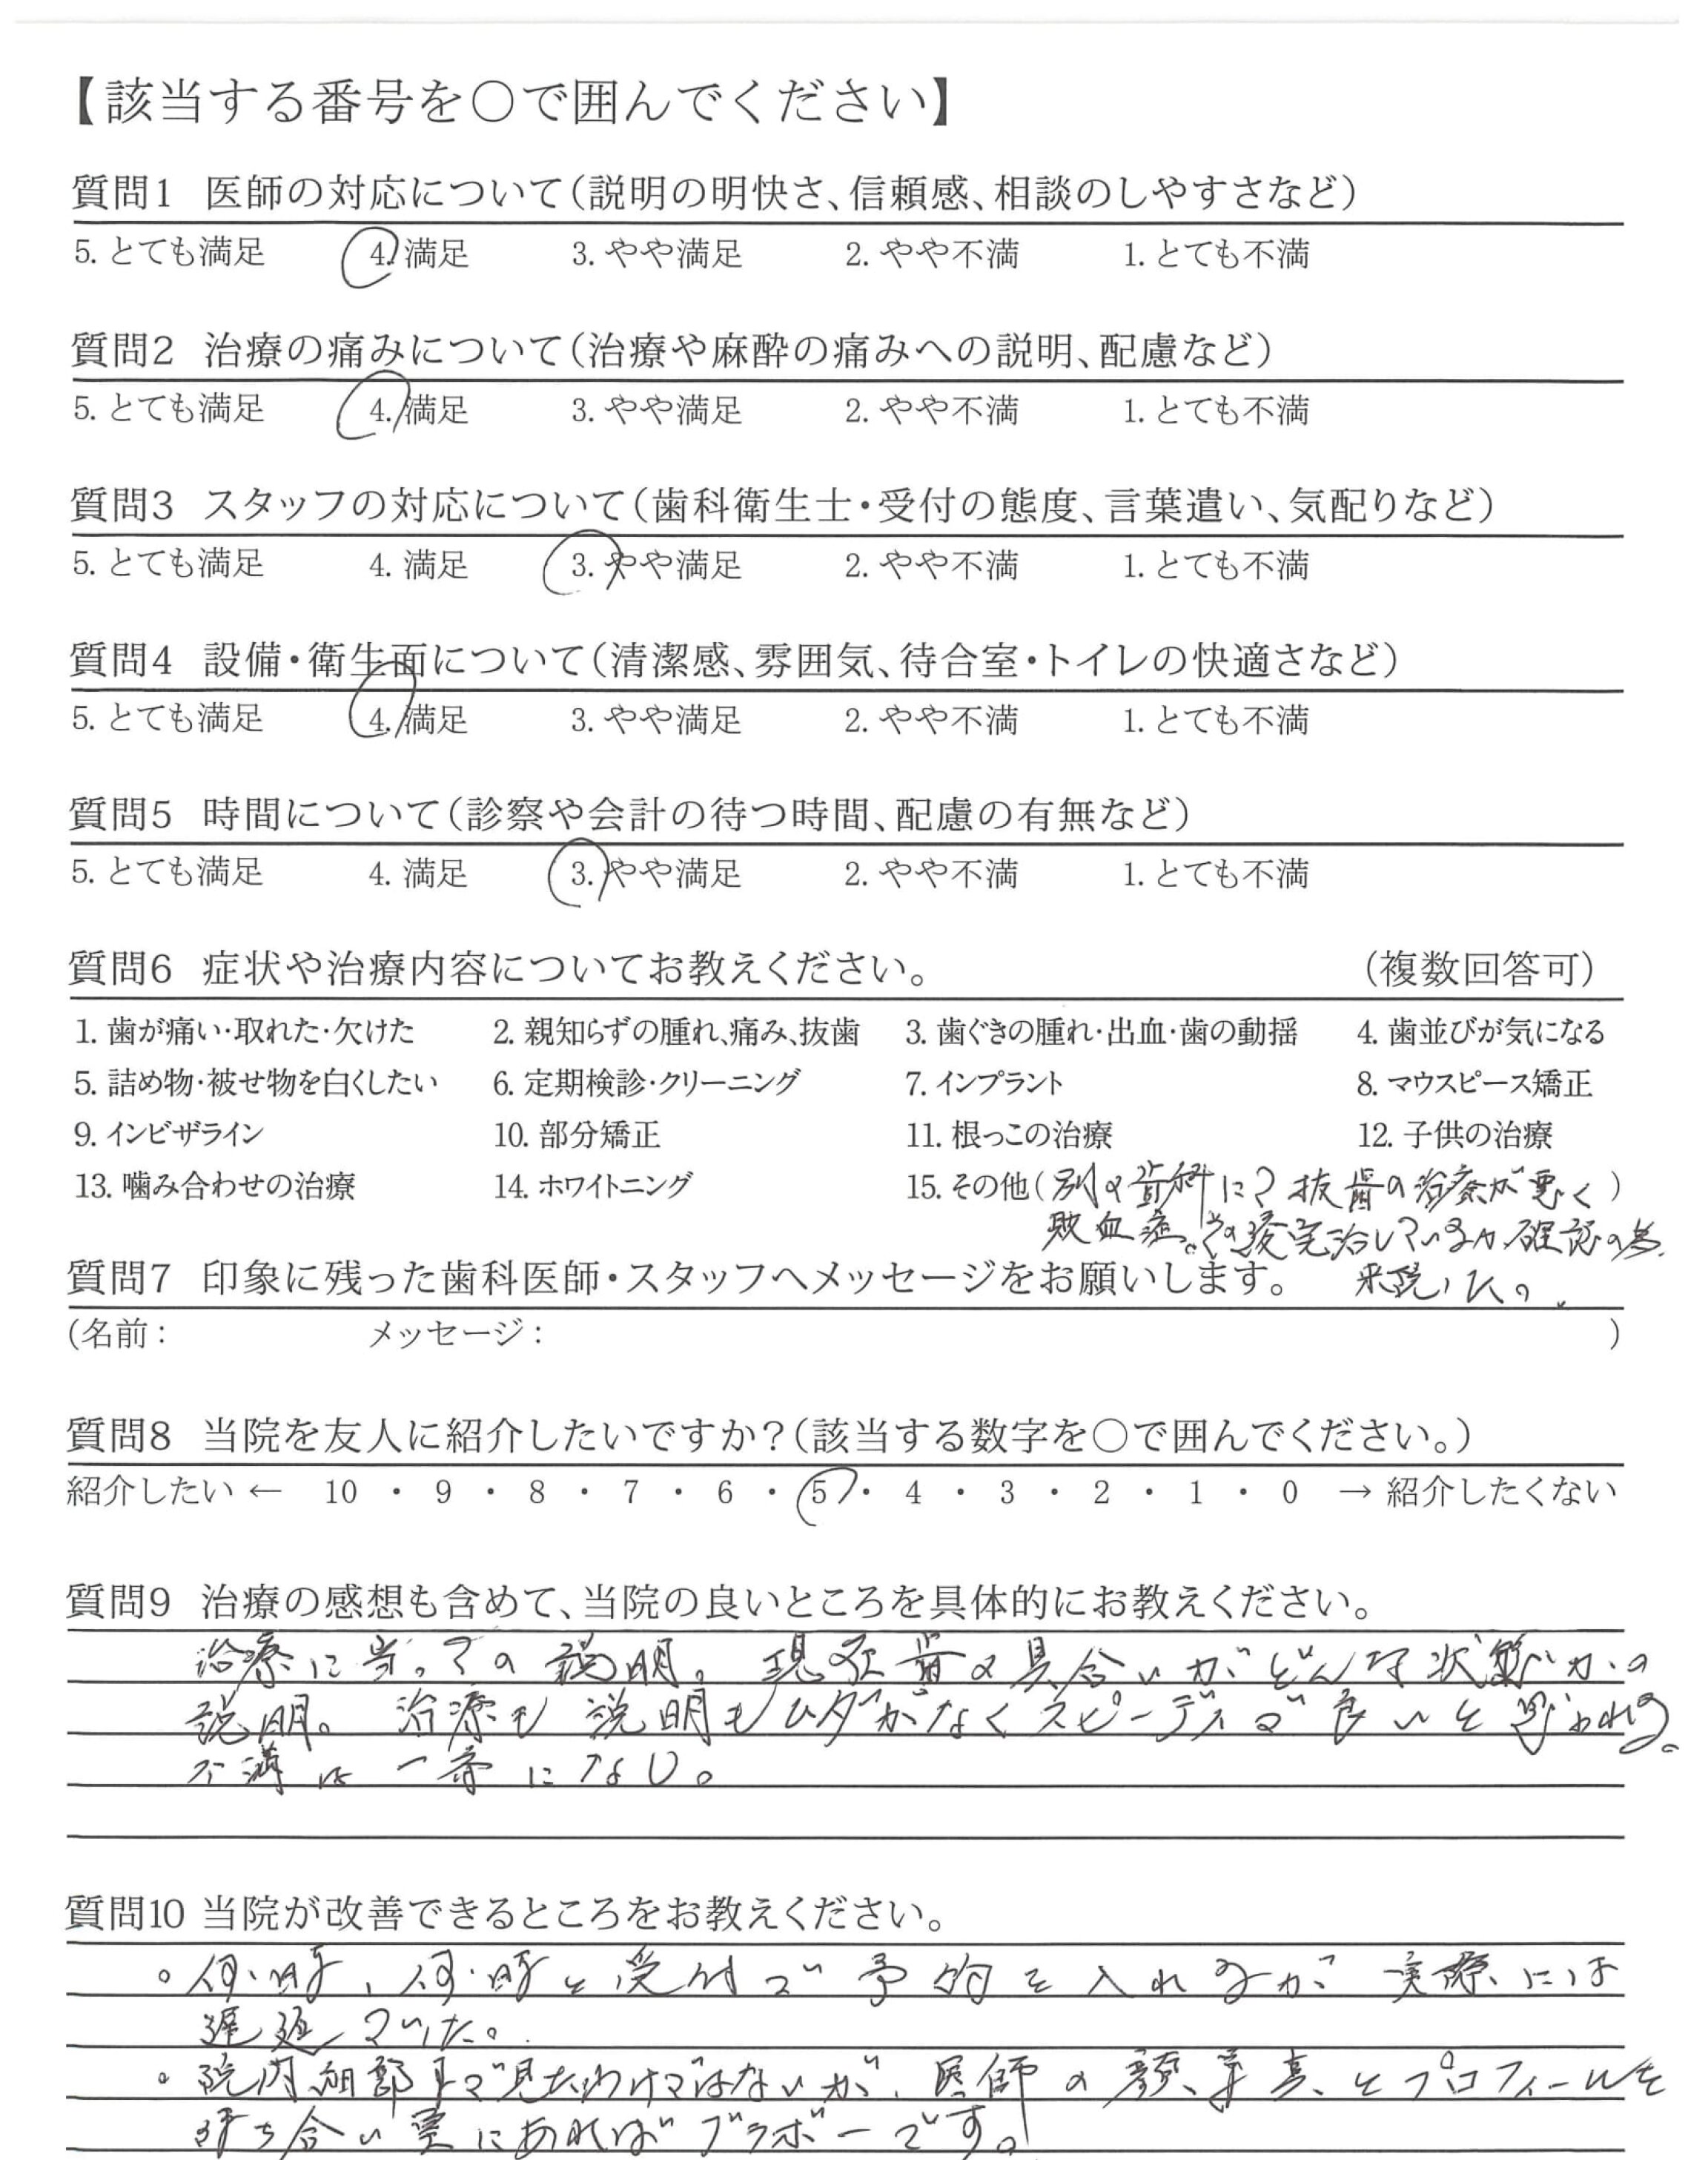 【該当する番号を○で囲んでください】
質問1 医師の対応について(説明の明快さ、信頼感、相談のしやすさなど)
5. とても満足 4. 満足 3. やや満足 2. やや不満 1. とても不満
質問2 治療の痛みについて(治療や麻酔の痛みへの説明、配慮など)
5. とても満足 4. 満足 3. やや満足 2. やや不満 1. とても不満
質問3 スタッフの対応について(歯科衛生士・受付の態度、言葉遣い、気配りなど)
5. とても満足 4. 満足 3. やや満足 2. やや不満 1. とても不満
質問4 設備・衛生面について(清潔感、雰囲気、待合室・トイレの快適さなど)
5. とても満足 4. 満足 3. やや満足 2. やや不満 1. とても不満
質問5 時間について(診察や会計の待つ時間、配慮の有無など)
5. とても満足 4. 満足 3. やや満足 2. やや不満 1. とても不満
質問6 症状や治療内容についてお教えください。 (複数回答可)
1. 歯が痛い・取れた・欠けた 2. 親知らずの腫れ、痛み、抜歯 3. 歯ぐきの腫れ・出血・歯の動揺 4. 歯並びが気になる
5. 詰め物・被せ物を白くしたい 6. 定期検診・クリーニング 7. インプラント 8. マウスピース矯正
9. インビザライン 10. 部分矯正 11. 根っこの治療 12. 子供の治療
13. 噛み合わせの治療 14. ホワイトニング 15. その他(別の歯科にて抜歯の治療が悪く)
敗血症。その後完治しているか確認の為
質問7 印象に残った歯科医師・スタッフへメッセージをお願いします。 来院した。
(名前: メッセージ: )
質問8 当院を友人に紹介したいですか?(該当する数字を○で囲んでください。)
紹介したい ← 10 ・ 9 ・ 8 ・ 7 ・ 6 ・ 5 ・ 4 ・ 3 ・ 2 ・ 1 ・ 0 → 紹介したくない
質問9 治療の感想も含めて、当院の良いところを具体的にお教えください。
治療に当っての説明。現在歯の具合いがどんな状態かの
説明。治療も説明もムダがなくスピーディで良いと思われる。
不満は一番になし。
質問10 当院が改善できるところをお教えください。
。何時、何時と受付で予約を入れるが実際には
遅延していた。
。院内細部まで見たわけではないが、医師の顔写真とプロフィールを
待ち合い室にあればブラボーです。